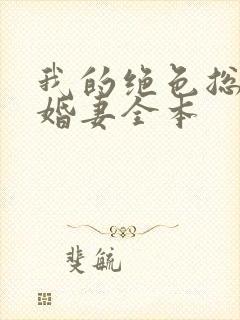 我的绝色总
婚妻全本
斐毓